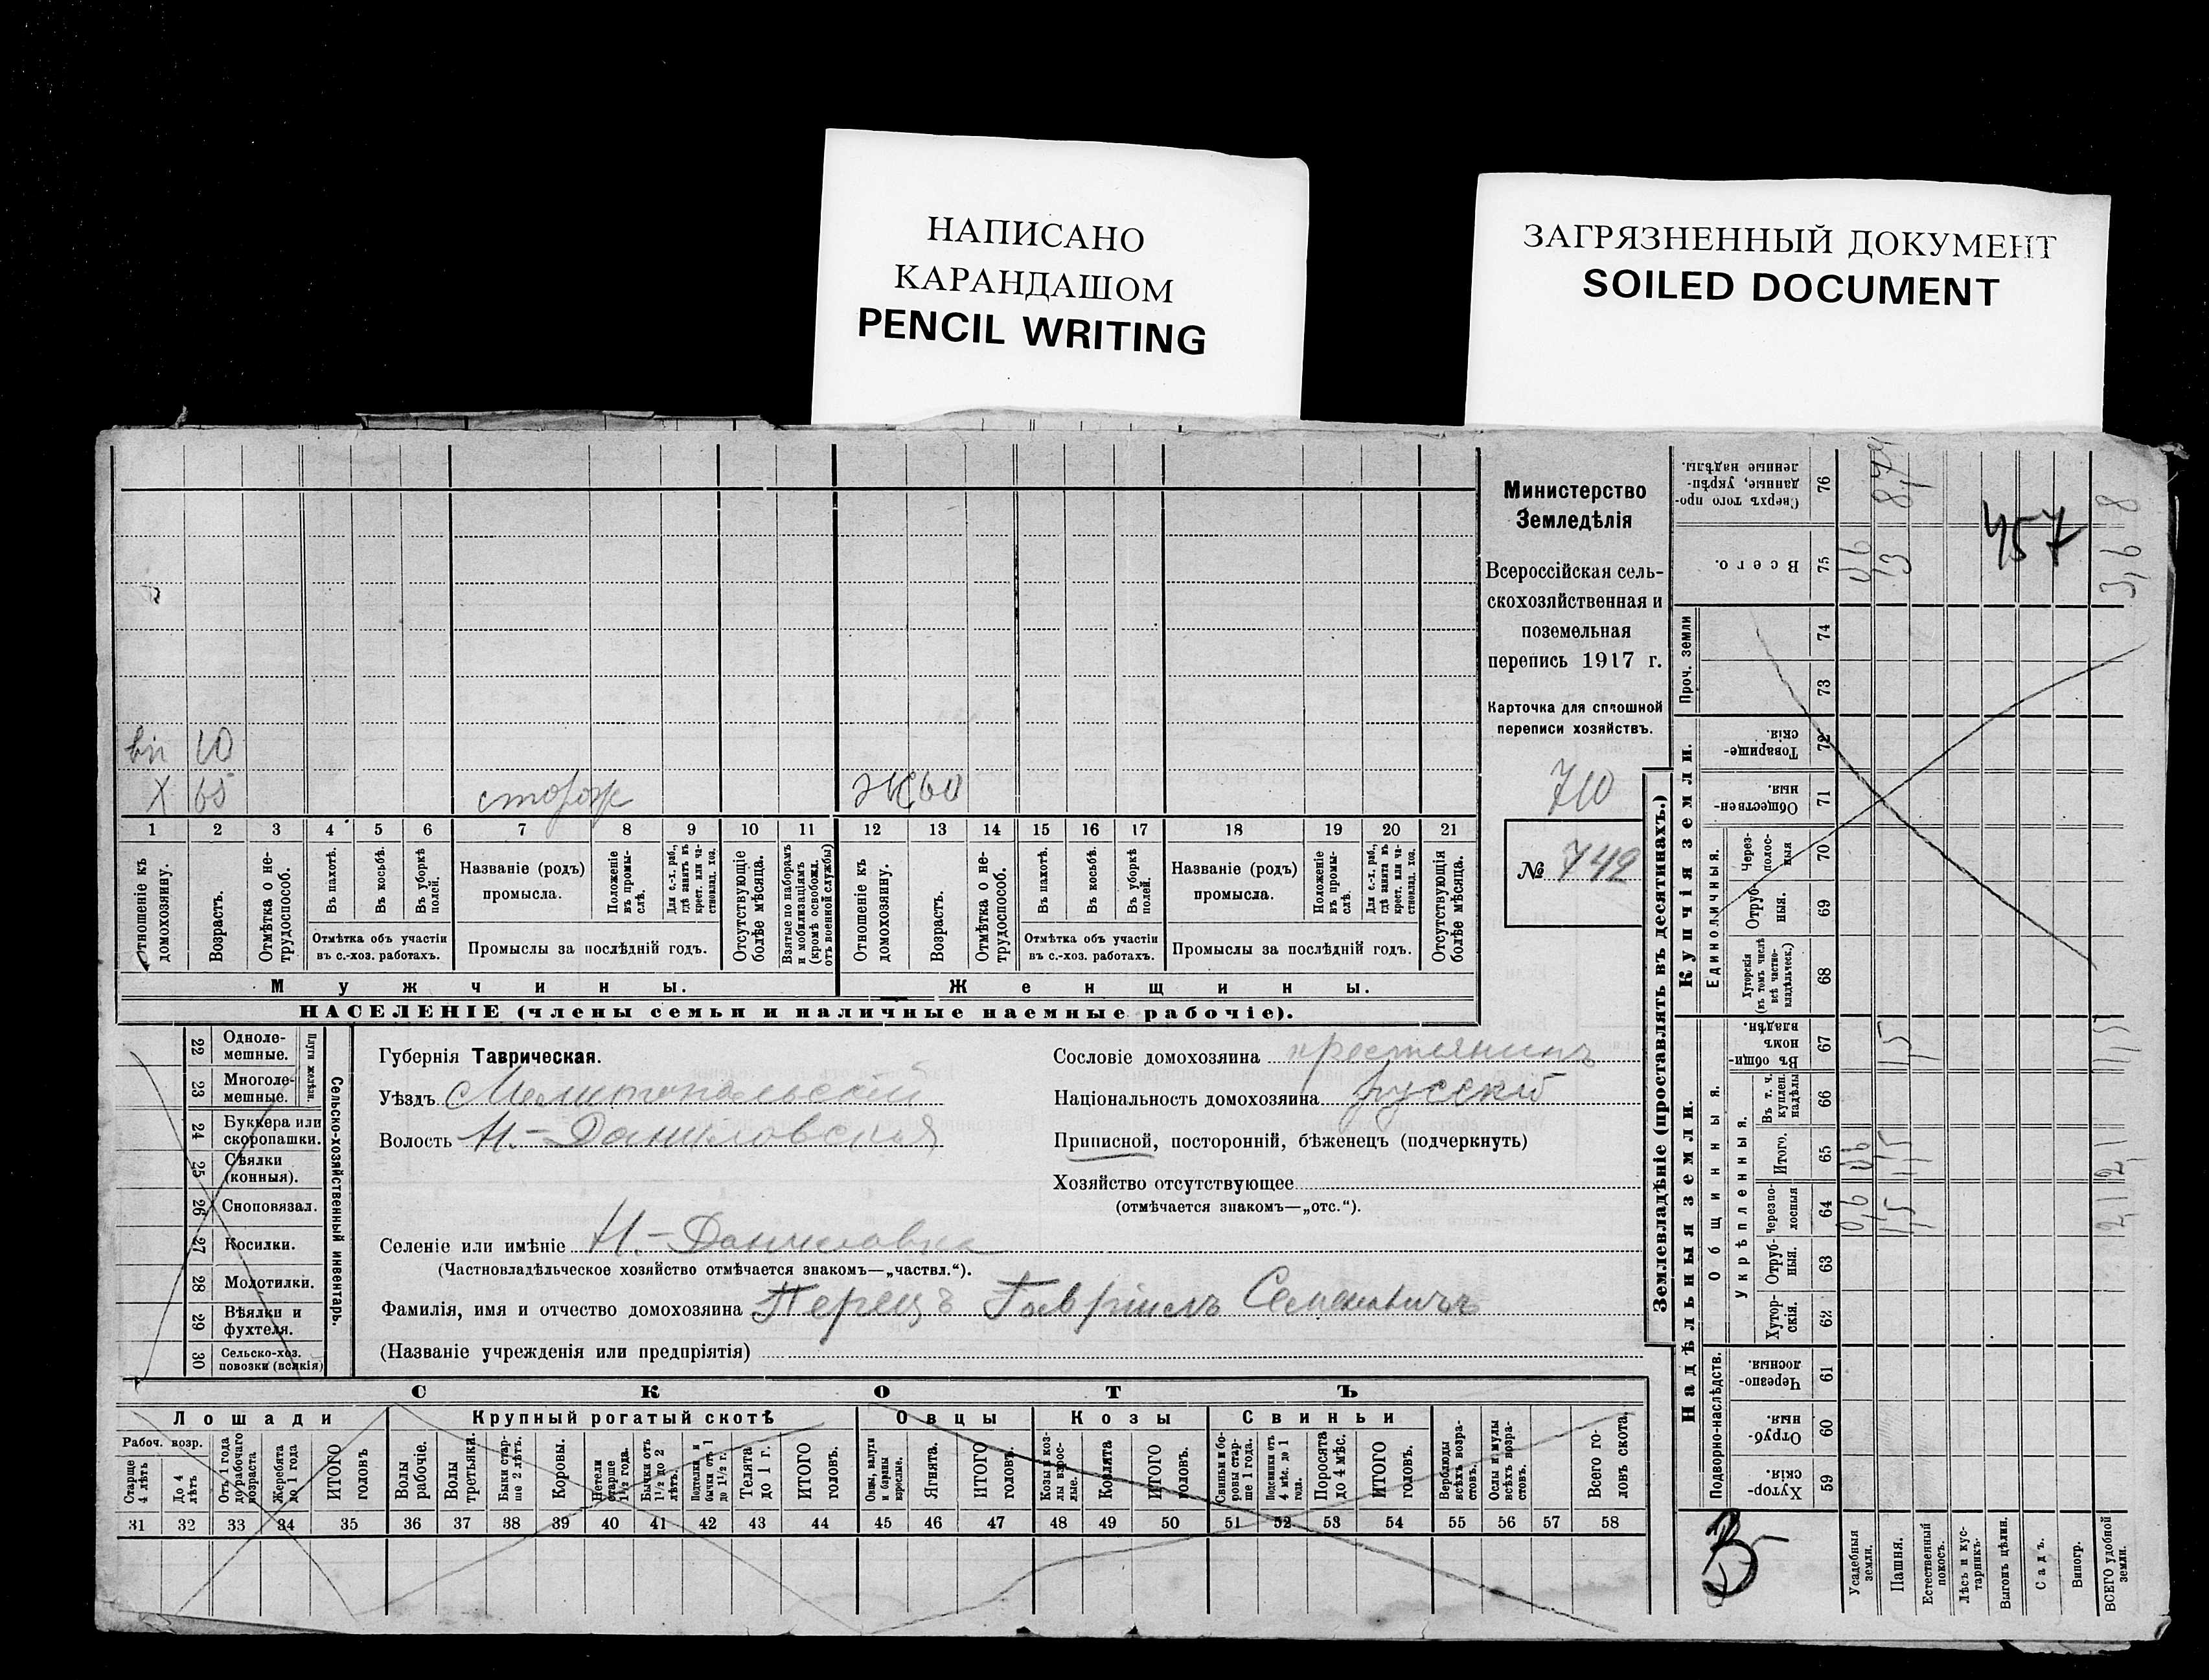 НАПИСАНО
КАРАНДАШОМ
PENCIL WRITING
ЗАГРЯЗНЕННЫЙ ДОКУМЕНТ
SOILED DOCUMENT
вн 10
X 65 сторож Ж 60
1 2 3 4 5 6 7 8 9 10 11 12 13 14 15 16 17 18 19 20 21
Отношеніе къ домохозяину.
Возрастъ.
Отмѣтка о нетрудоспособ.
Въ пахотѣ.
Въ косьбѣ.
Въ уборкѣ полей.
Названіе (родъ) промысла.
Положеніе въ промыслѣ.
Для с.-х. раб., гдѣ занятъ въ крест. или частновлад. хоз.
Отсутствующіе болѣе мѣсяца.
Взятые по наборамъ и мобилизаціямъ (кромѣ освобожд. отъ военной службы)
Отношеніе къ домохозяину.
Возрастъ.
Отмѣтка о нетрудоспособ.
Въ пахотѣ.
Въ косьбѣ.
Въ уборкѣ полей.
Названіе (родъ) промысла.
Положеніе въ промыслѣ.
Для с.-х. раб., гдѣ занята въ крест. или частновлад. хоз.
Отсутствующія болѣе мѣсяца.
Отмѣтка объ участіи въ с.-хоз. работахъ.
Промыслы за послѣдній годъ.
Отмѣтка объ участіи въ с.-хоз. работахъ.
Промыслы за послѣдній годъ.
Мужчины.
Женщины.
НАСЕЛЕНІЕ (члены семьи и наличные наемные рабочіе).
Министерство
Земледѣлія
Всероссійская сель-
скохозяйственная и
поземельная
перепись 1917 г.
Карточка для сплошной
переписи хозяйствъ.
710
№ 742
22 Однолемешные.
23 Многолемешные.
Плуги желѣзн.
24 Буккера или скоропашки.
25 Сѣялки (конныя).
26 Сноповязал.
27 Косилки.
28 Молотилки.
29 Вѣялки и фухтеля.
30 Сельско-хоз. повозки (всякія)
Сельско-хозяйственный инвентарь.
Губернія Таврическая.
Уѣздъ Мелитопольскій
Волость Н.-Даниловская
Селеніе или имѣніе Н.-Даниловка
(Частновладѣльческое хозяйство отмѣчается знакомъ—„частвл.“).
Фамилія, имя и отчество домохозяина Перецъ Гавріилъ Семеновичъ
(Названіе учрежденія или предпріятія)
Сословіе домохозяина крестьянинъ
Національность домохозяина русскій
Приписной, посторонній, бѣженецъ (подчеркнуть)
Хозяйство отсутствующее
(отмѣчается знакомъ—„отс.“).
СКОТЪ
Лошади
Крупный рогатый скотъ
Овцы
Козы
Свиньи
Рабоч. возр.
Старше 4 лѣтъ
До 4 лѣтъ
Отъ 1 года до рабочаго возраста
Жеребята до 1 года
ИТОГО головъ
Волы рабочіе.
Волы третьяки.
Быки старше 2 лѣтъ.
Коровы.
Нетели старше 1½ года.
Бычки отъ 1½ до 2 лѣтъ.
Подтелки и бычки отъ 1 до 1½ г.
Телята до 1 г.
ИТОГО головъ
Овцы, валухи и бараны взрослые.
Ягнята.
ИТОГО головъ.
Козы и козлы взрослые.
Козлята
ИТОГО головъ.
Свиньи и боровы старше 1 года.
Подсвинки отъ 4 мѣс. до 1 года.
Поросята до 4 мѣс.
ИТОГО головъ.
Верблюды всѣхъ возрастовъ.
Ослы и мулы всѣхъ возрастовъ.
Всего головъ скота
31 32 33 34 35 36 37 38 39 40 41 42 43 44 45 46 47 48 49 50 51 52 53 54 55 56 57 58
Землевладѣніе (проставлять въ десятинахъ.)
Надѣльныя земли.
Купчія земли.
Проч. земли
Сверхъ того проданные, укрѣпленные надѣлы. 76 8,74
Всего. 75 0,6 13 3,68
74
73
Товарищескія. 72
Общественныя. 71
Единоличныя.
Черезполосныя 70
Отрубныя. 69
Хуторскія (въ томъ числѣ всѣ частновладѣльческ.) 68
Общинныя.
Въ общинномъ владѣн. 67
Укрѣпленныя.
Въ т. ч. куплен. надѣлы 66
Итого. 65
Черезполосныя 64
Отрубныя. 63
Хуторскія. 62
Подворно-наслѣдств.
Черезполосныя 61
Отрубныя. 60
Хуторскія. 59
457
В
Усадебныя земли.
Пашня.
Естественный покосъ.
Лѣсъ и кустарникъ.
Выгонъ цѣлин.
Садъ.
Виногр.
ВСЕГО удобной земли.